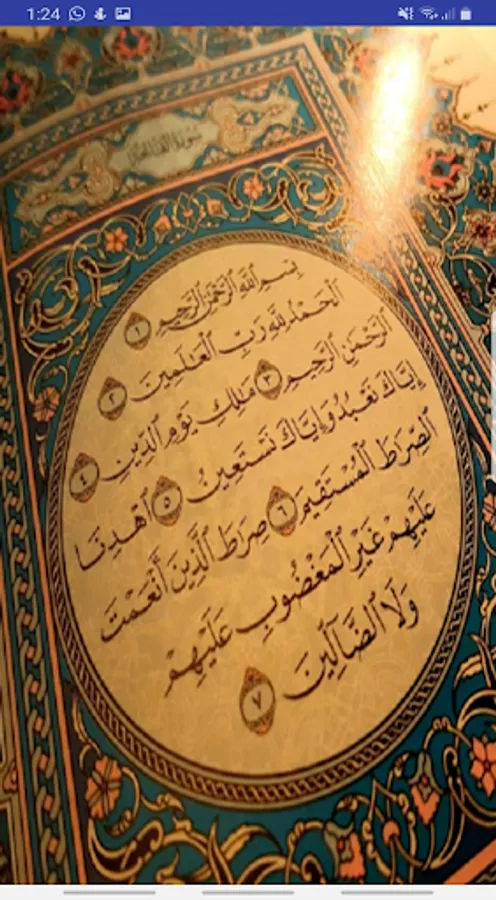 1:24
سورة الفاتحة
بِسْمِ ٱللَّهِ ٱلرَّحْمَٰنِ ٱلرَّحِيمِ ١
ٱلْحَمْدُ لِلَّهِ رَبِّ ٱلْعَٰلَمِينَ ٢
ٱلرَّحْمَٰنِ ٱلرَّحِيمِ ٣ مَٰلِكِ يَوْمِ ٱلدِّينِ ٤
إِيَّاكَ نَعْبُدُ وَإِيَّاكَ نَسْتَعِينُ ٥ ٱهْدِنَا
ٱلصِّرَٰطَ ٱلْمُسْتَقِيمَ ٦ صِرَٰطَ ٱلَّذِينَ أَنْعَمْتَ
عَلَيْهِمْ غَيْرِ ٱلْمَغْضُوبِ عَلَيْهِمْ
وَلَا ٱلضَّآلِّينَ ٧